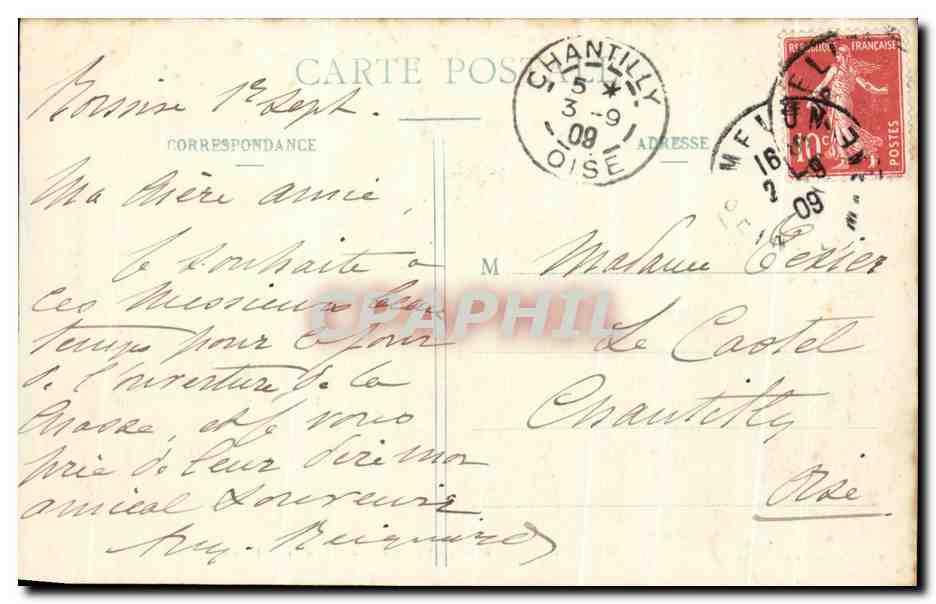 CARTE POSTALE
1er Sept.
CORRESPONDANCE
Ma chère amie,
Je souhaite à
ces Messieurs beau
temps pour le jour
de l'ouverture de la
chasse, et je vous
prie de leur dire mon
amical souvenir
Aug.
ADRESSE
M
Madame Tézier
Le Castel
Chantilly
Oise
CHANTILLY
5 *
3 -9
09
OISE
REPUBLIQUE FRANÇAISE
10 c
POSTES
MELUN
16
2 -9
09
CPAPHIL